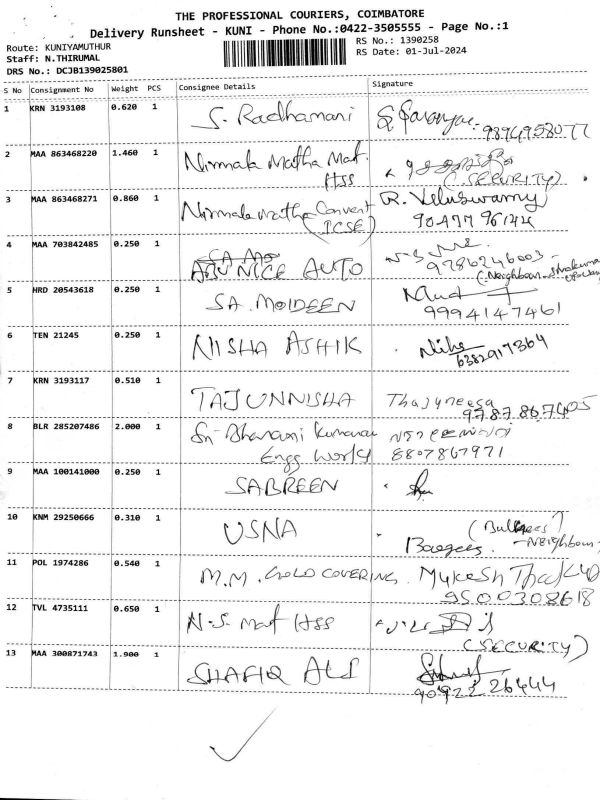 THE PROFESSIONAL COURIERS, COIMBATORE
Delivery Runsheet - KUNI - Phone No.:0422-3505555 - Page No.:1
Route: KUNIYAMUTHUR
RS No.: 1390258
Staff: N.THIRUMAL
RS Date: 01-Jul-2024
DRS No.: DCJB139025801
S No Consignment No Weight PCS Consignee Details Signature
1 KRN 3193108 0.620 1 S. Radhamani
2 MAA 863468220 1.460 1 Nirmala Matha Mat.
HSS (SECURITY)
3 MAA 863468271 0.860 1 Nirmala matha Convent R. Veluswamy
(ICSE) 90477 96144
4 MAA 703842485 0.250 1
ABU NICE AUTO 9786246003
(Neighbour
5 HRD 20543618 0.250 1 SA. MOIDEEN
9994147461
6 TEN 21245 0.250 1 NISHA ASHIK Nisha
6382917364
7 KRN 3193117 0.510 1 TAJUNNISHA Thajuneesa
9787867405
8 BLR 285207486 2.000 1 Sri Bhavani Kumaran
Engg Works 8807867971
9 MAA 100141000 0.250 1 SABREEN
10 KNM 29250666 0.310 1 USNA
- Neighbour)
11 POL 1974286 0.540 1 M.M. GOLD COVERING. Mukesh Thakur
9500308618
12 TVL 4735111 0.650 1 N.S. Mat HSS
(SECURITY)
13 MAA 300871743 1.900 1 SHAFIQ ALI
90922 26444